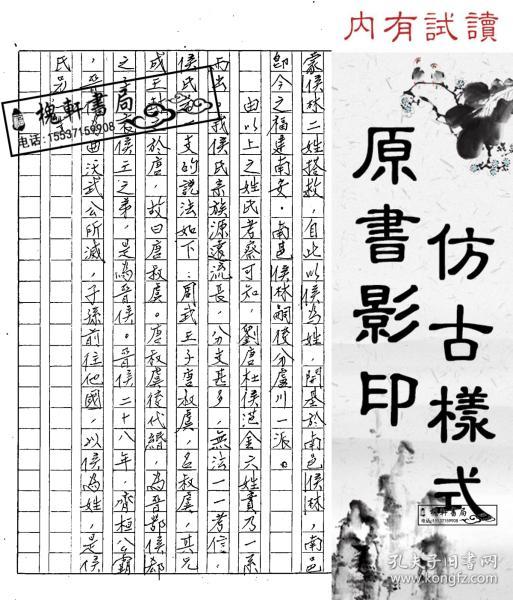 内有試讀
原書影印
仿古樣式
蒙侯林二姓搭救，自此以侯為姓，開基於南邑侯林，南邑
即今之福建南安。南邑侯林嗣後分盧川一派。
由以上之姓氏考察可知，劉唐杜侯范金六姓實乃一系
而出。我侯氏宗族源遠流長，分支甚多，無法一一考信，
侯氏 支的說法如下：周武王子唐叔虞，名叔虞，其兄
成王 於唐，故曰唐叔虞。唐叔虞後代緡，為晉鄂侯郤
之 哀侯王之弟，是為晉侯。晉侯二十八年，齊桓公霸
，晉 曲沃武公所滅，子孫前往他國，以侯為姓，是侯
氏另
槐軒書局
电话：15537159908
槐軒書局
电话：15537159908
孔夫子旧书网
kongfz.com